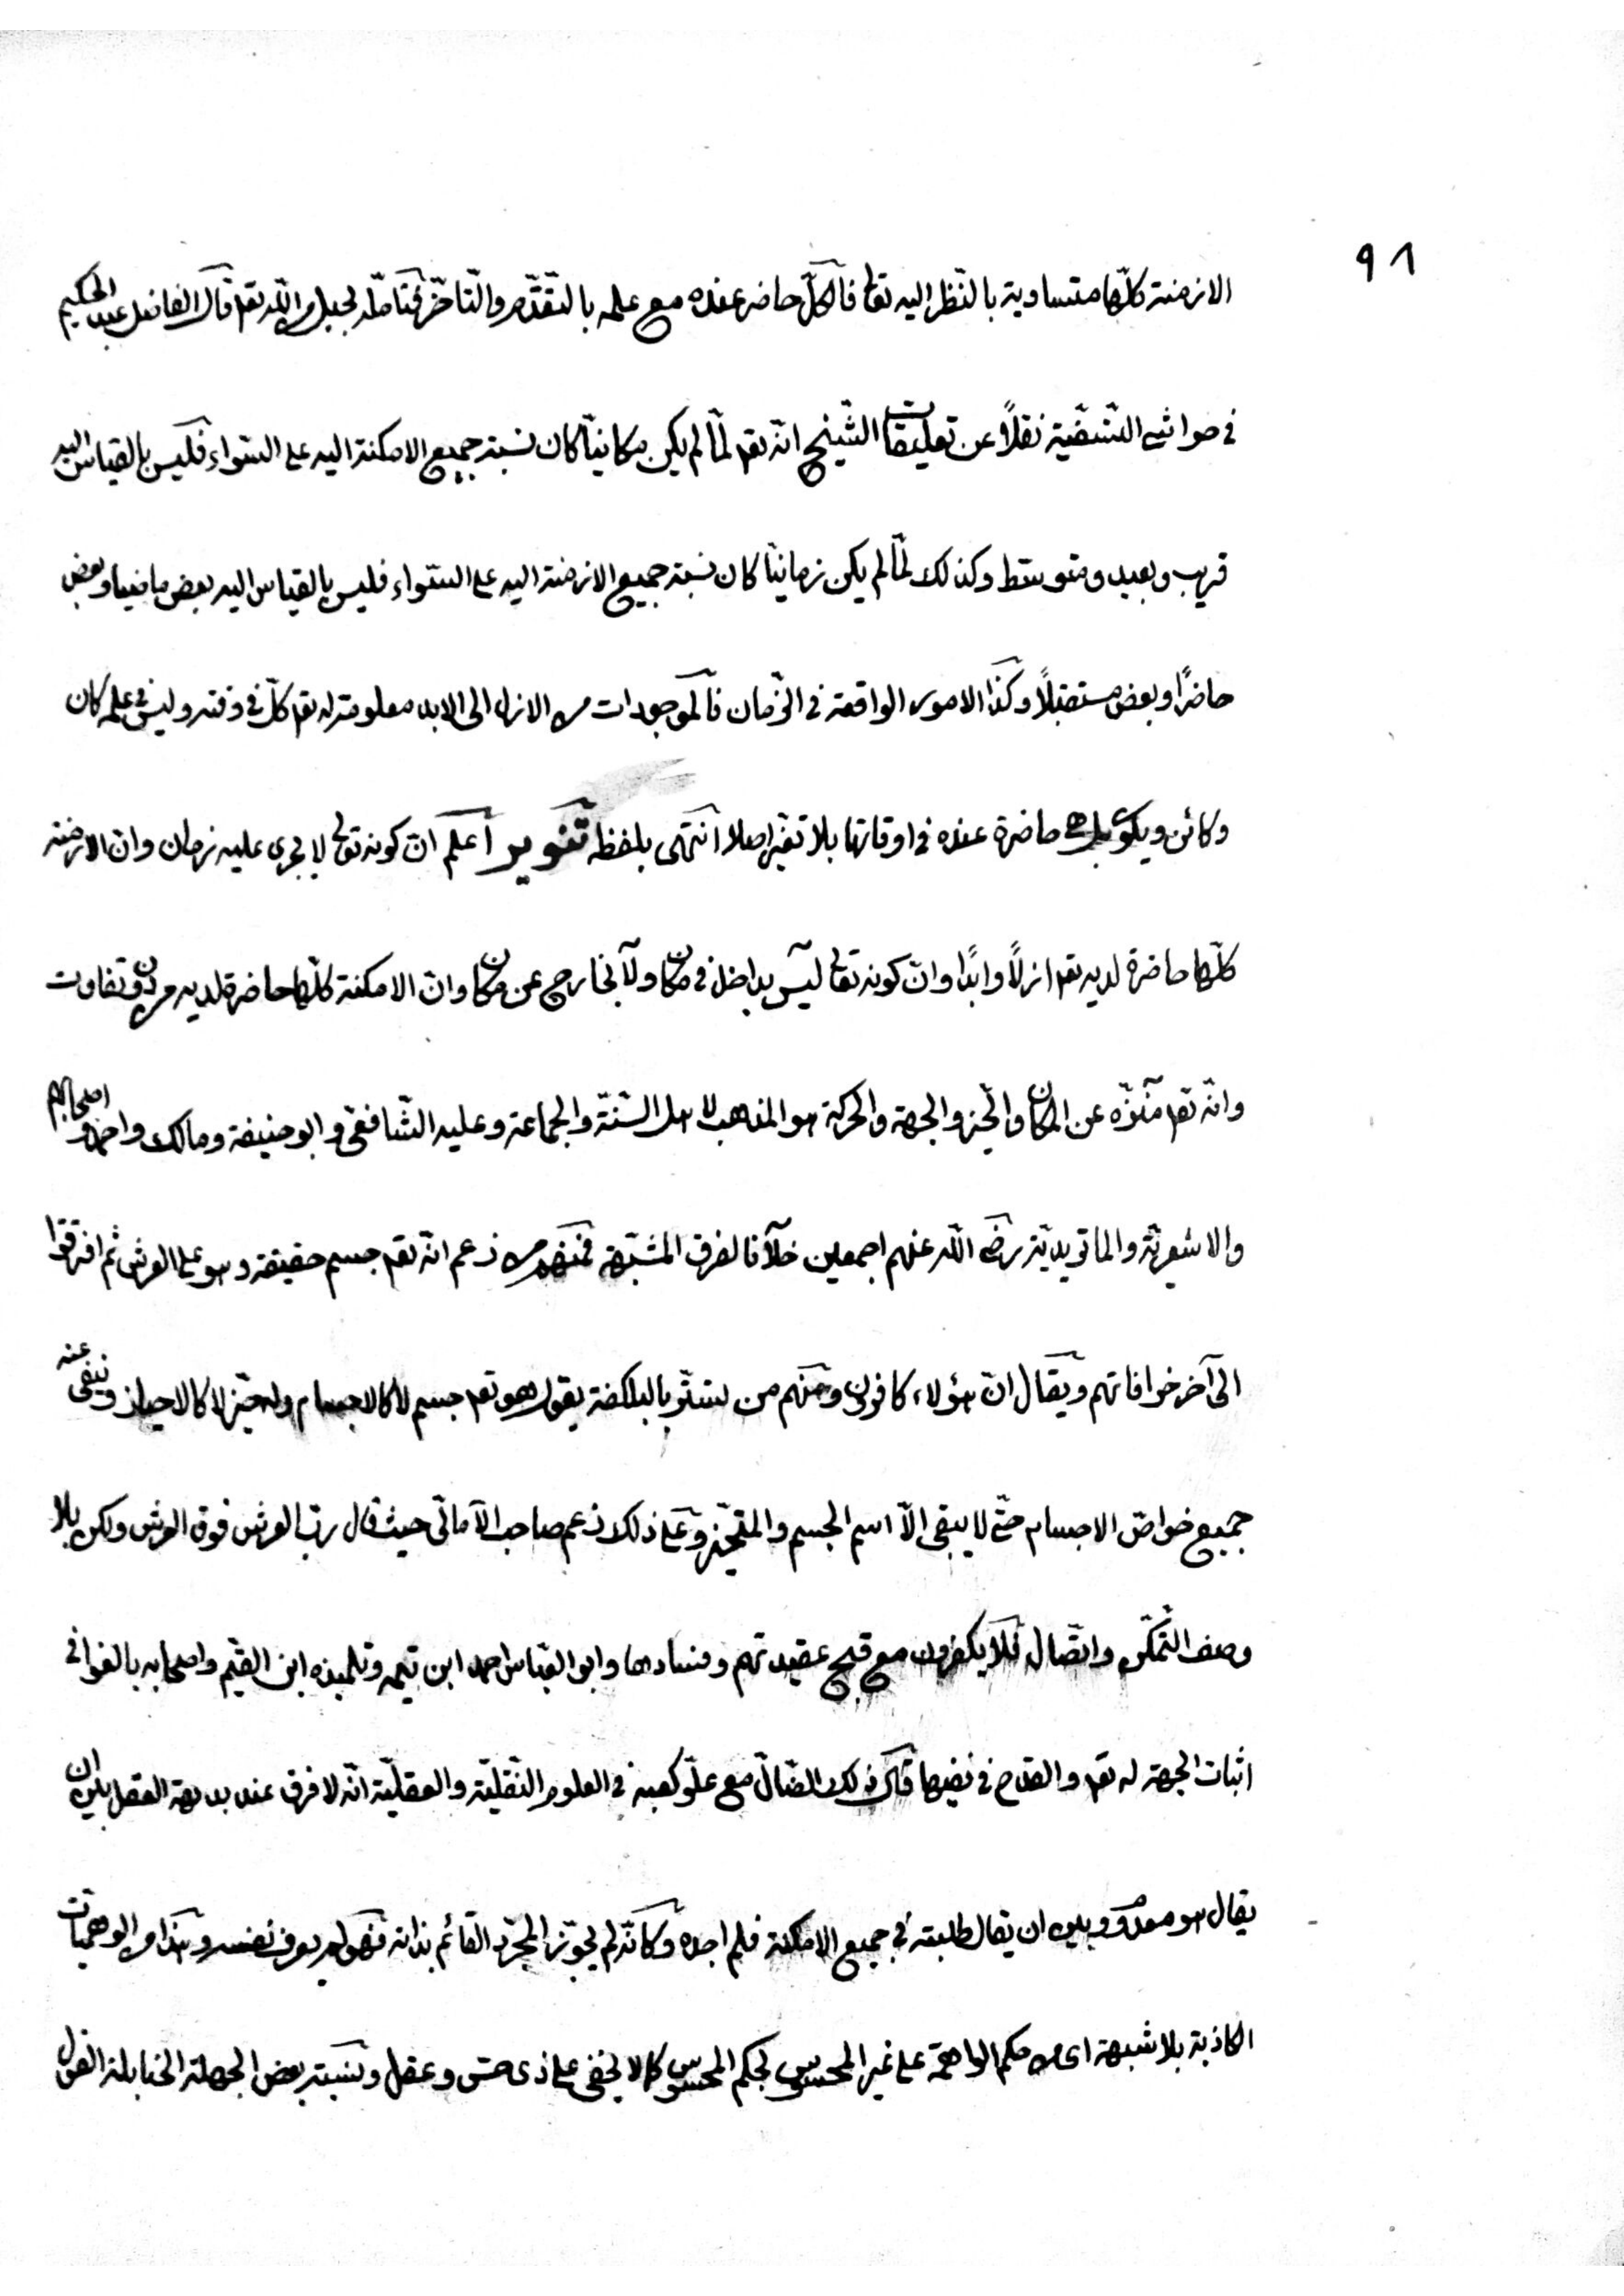 ٩١
الازمنة كلّها متساوية بالنّظر اليه تعالى فالكلّ حاضر عنده مع علمه بالتقدّم والتأخّر فتأمّله قال الفاضل عبد الحكيم
فى حواشى النّسفيّة نقلاً عن تعليقات الشّيخ انّه تعـ لمّا لم يكن مكانيّا كان نسبة جميع الامكنة اليه على السّواء فليس بالقياس اليه
قريب وبعيد ومتوسّط وكذلك لمّا لم يكن زمانيّا كان نسبة جميع الازمنة اليه على السّواء فليس بالقياس اليه بعض ماضيا وبعض
حاضرًا وبعض مستقبلاً وكذا الامور الواقعة فى الزّمان فالموجودات من الازل الى الابد معلومة له تعـ كلّ فى وقته وليس فى علمه كان
وكائن ويكون بل هى حاضرة عنده فى اوقاتها بلا تغيّر اصلا انتهى بلفظه تنوير اعلم انّ كونه تعالى لا يجرى عليه زمان وانّ الازمنة
كلّها حاضرة لديه تعـ ازلاً وابدًا وانّ كونه تعالى ليس بداخل فى مكان ولا بخارج عن مكان وانّ الامكنة كلّها حاضرة لديه من دون تفاوت
وانّه تعـ منزّه عن المكان والحيّز والجهة والحركة هو المذهب لاهل السّنّة والجماعة وعليه الشّافعى وابو حنيفة ومالك واحمد واصحابهم
والاشعريّة والماتريديّة رضى الله عنهم اجمعين خلافا لفرق المشبّهة فمنهم من زعم انّه تعـ جسم حقيقة وهو على العرش ثم افترقوا
الى آخر خرافاتهم ويقال انّ هؤلاء كافرون ومنهم من تستّر بالبلكفة يقول هو تعـ جسم لا كالاجسام وله حيّز لا كالاحياز ونفى عنه
جميع خواصّ الاجسام حتّى لا يبقى الاّ اسم الجسم والمتحيّز وعلى ذلك زعم صاحب الآمالى حيث قال ربّ العرش فوق العرش ولكن بلا
وصف التّمكّن واتّصال فلا يكفرون مع قبح عقيدتهم وفسادها وابو العبّاس احمد ابن تيمه وتلميذه ابن القيّم واصحابه بالغوا فى
اثبات الجهة له تعـ والقدح فى نفيها قال ذلك الضّالّ مع علوّ كعبه فى العلوم النّقليّة والعقليّة انّه لا فرق عند بديهة العقل بين ان
يقال هو معدوم وبين ان يقال طلبته فى جميع الامكنة فلم اجده وكأنّه لم يجوّز المجرّد القائم بذاته فهو لم يعرف نفسه وهذا من الوهميّات
الكاذبة بلا شبهة اى من حكم الواهمة على غير المحسوس بحكم المحسوس كما لا يخفى على ذى حسّ وعقل ونسبة بعض الجهلة الحنابلة القول